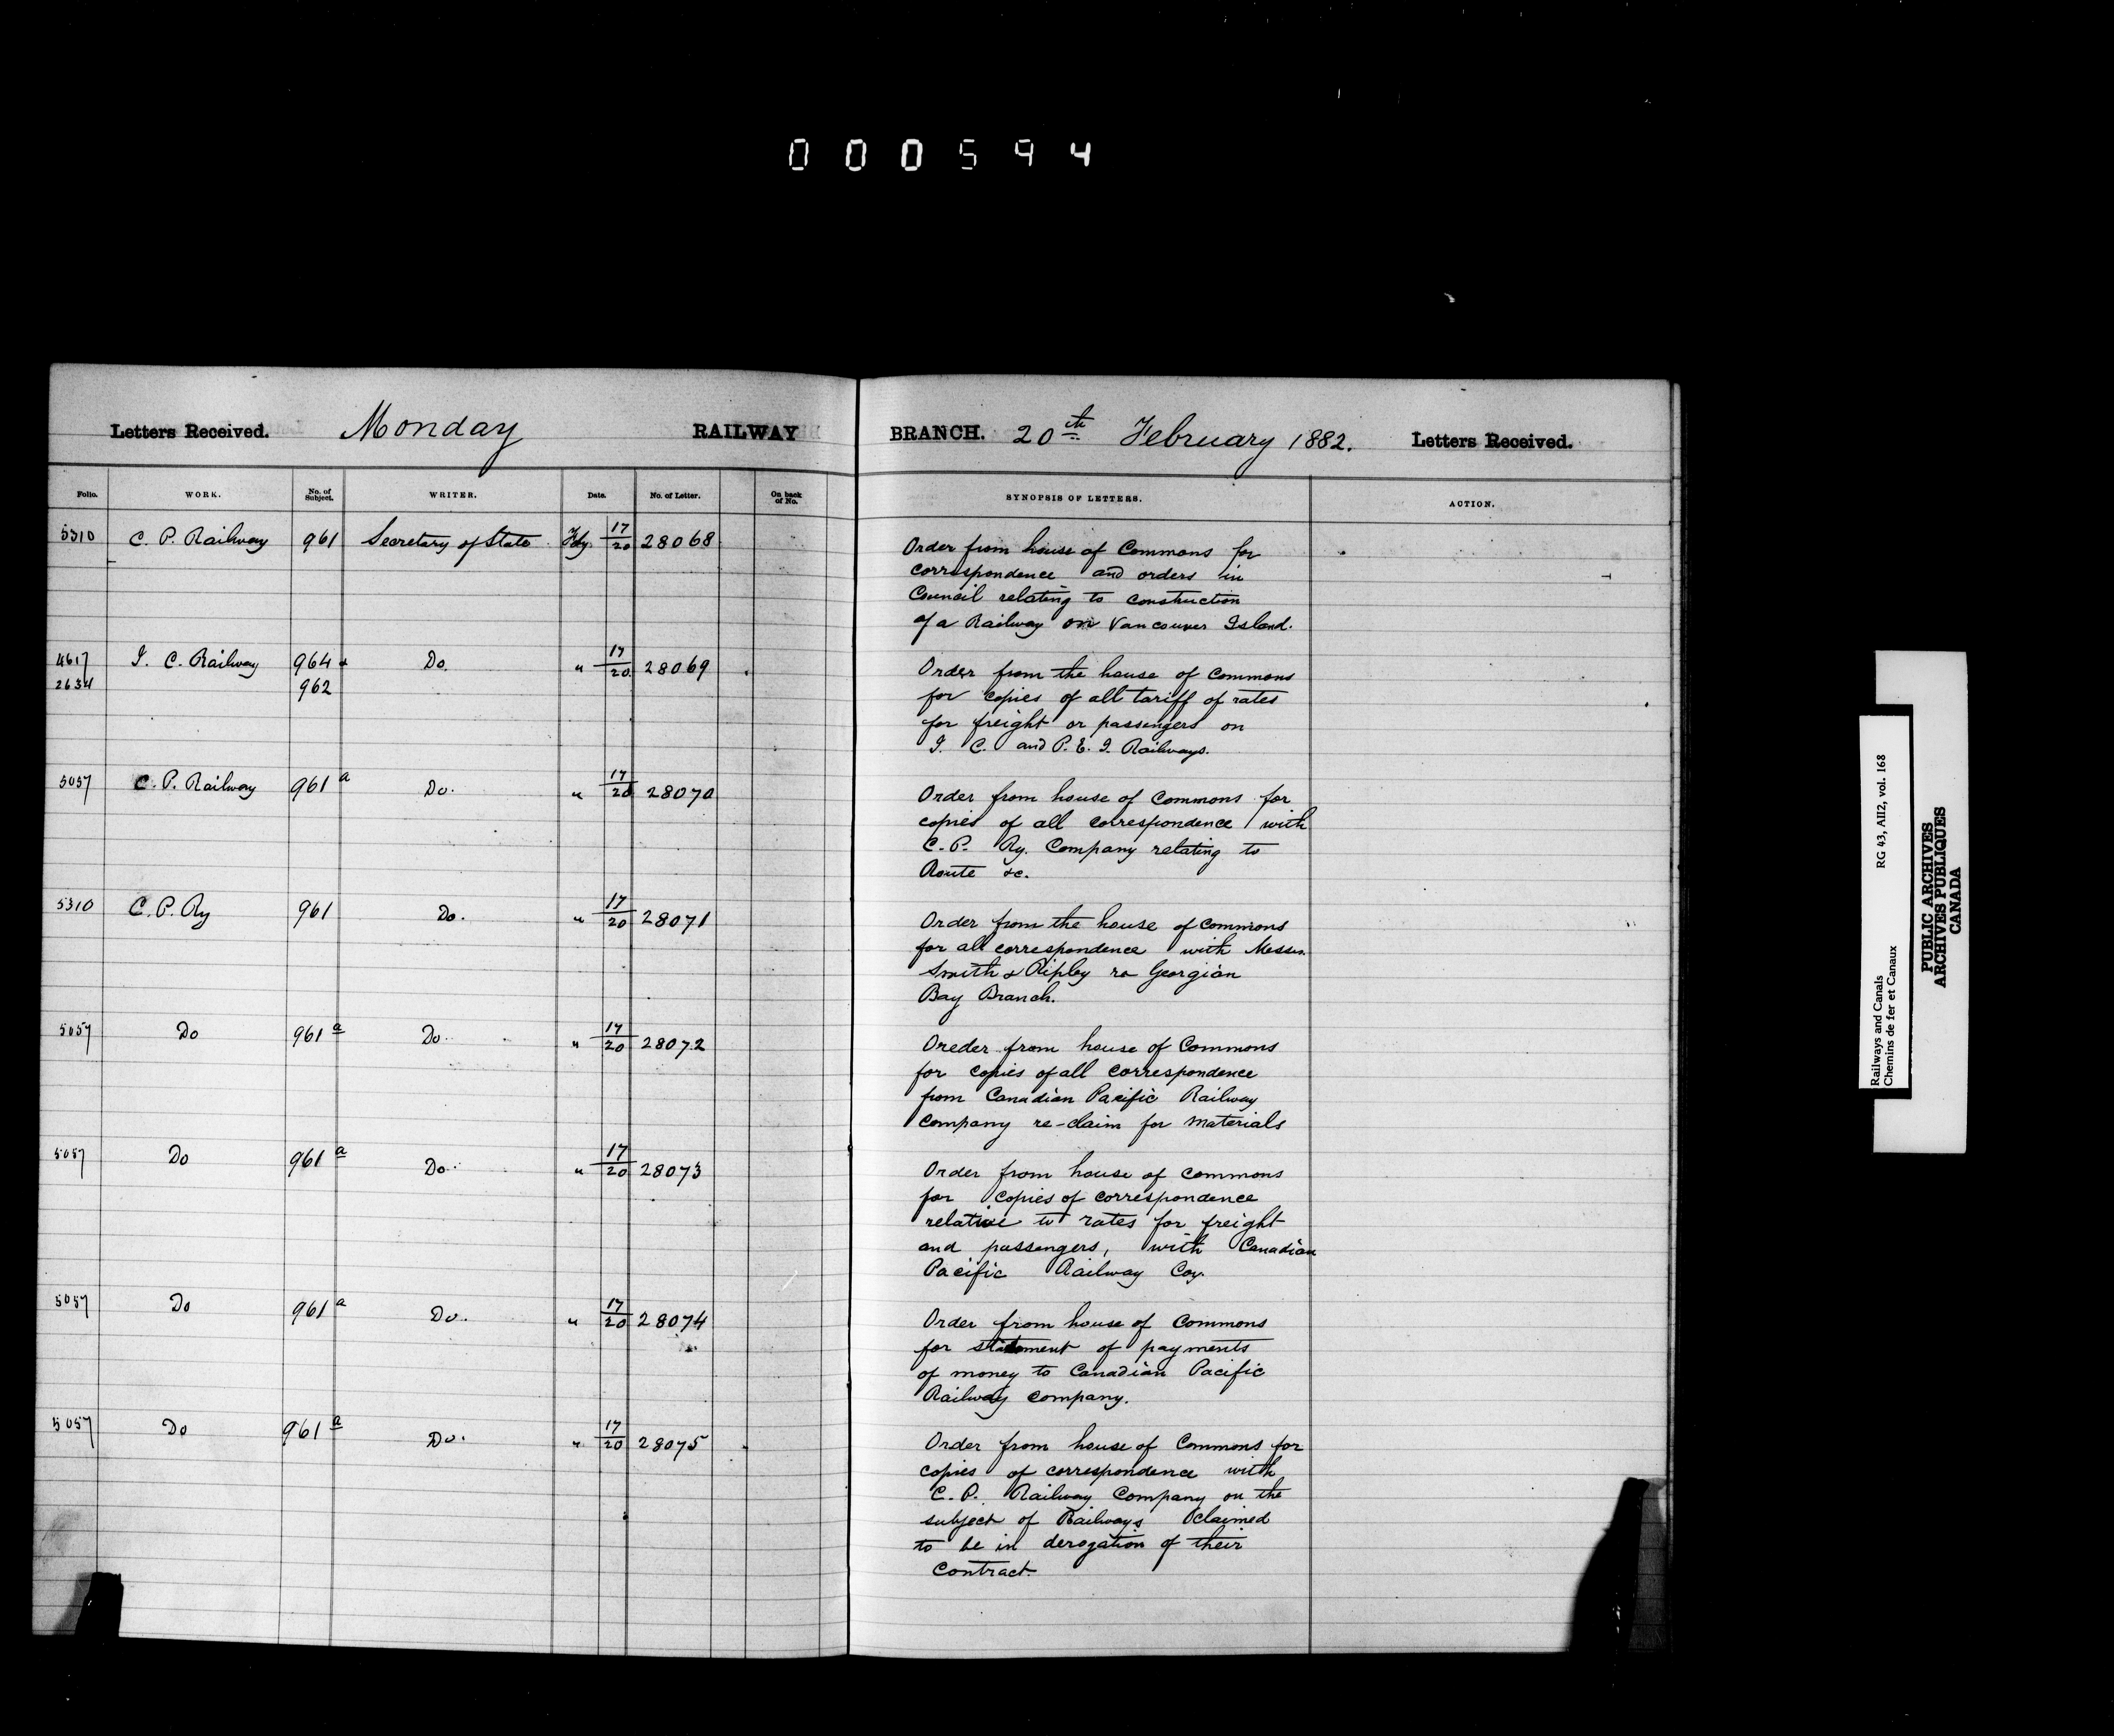 000594
Letters Received. Monday RAILWAY BRANCH. 20th February 1882. Letters Received.
Folio. WORK. No. of Subject. WRITER. Date. No. of Letter. On back of No. SYNOPSIS OF LETTERS. ACTION.
5310 C. P. Railway 961 Secretary of State Fdy 17/20 28068
Order from house of Commons for
correspondence and orders in
Council relating to construction
of a Railway on Vancouver Island.
4617 I. C. Railway 964 & Do. " 17/20 28069
2634 962
Order from the house of Commons
for copies of all tariff of rates
for freight or passengers on
I. C. and P. E. I. Railways.
5057 C. P. Railway 961a Do. " 17/20 28070
Order from house of Commons for
copies of all correspondence with
C. P. Ry. Company relating to
Route &c.
5310 C. P. Ry 961 Do. " 17/20 28071
Order from the house of Commons
for all correspondence with Messrs.
Smith & Ripley re Georgian
Bay Branch.
5057 Do 961a Do. " 17/20 28072
Oreder from house of Commons
for copies of all correspondence
from Canadian Pacific Railway
Company re-claim for materials
5057 Do 961a Do. " 17/20 28073
Order from house of Commons
for copies of correspondence
relative to rates for freight
and passengers, with Canadian
Pacific Railway Coy.
5057 Do 961a Do. " 17/20 28074
Order from house of Commons
for statement of payments
of money to Canadian Pacific
Railway Company.
5057 Do 961a Do. " 17/20 28075
Order from house of Commons for
copies of correspondence with
C. P. Railway Company on the
subject of Railways claimed
to be in derogation of their
Contract.
Railways and Canals RG 43, AII2, vol. 168
Chemins de fer et Canaux
PUBLIC ARCHIVES
ARCHIVES PUBLIQUES
CANADA